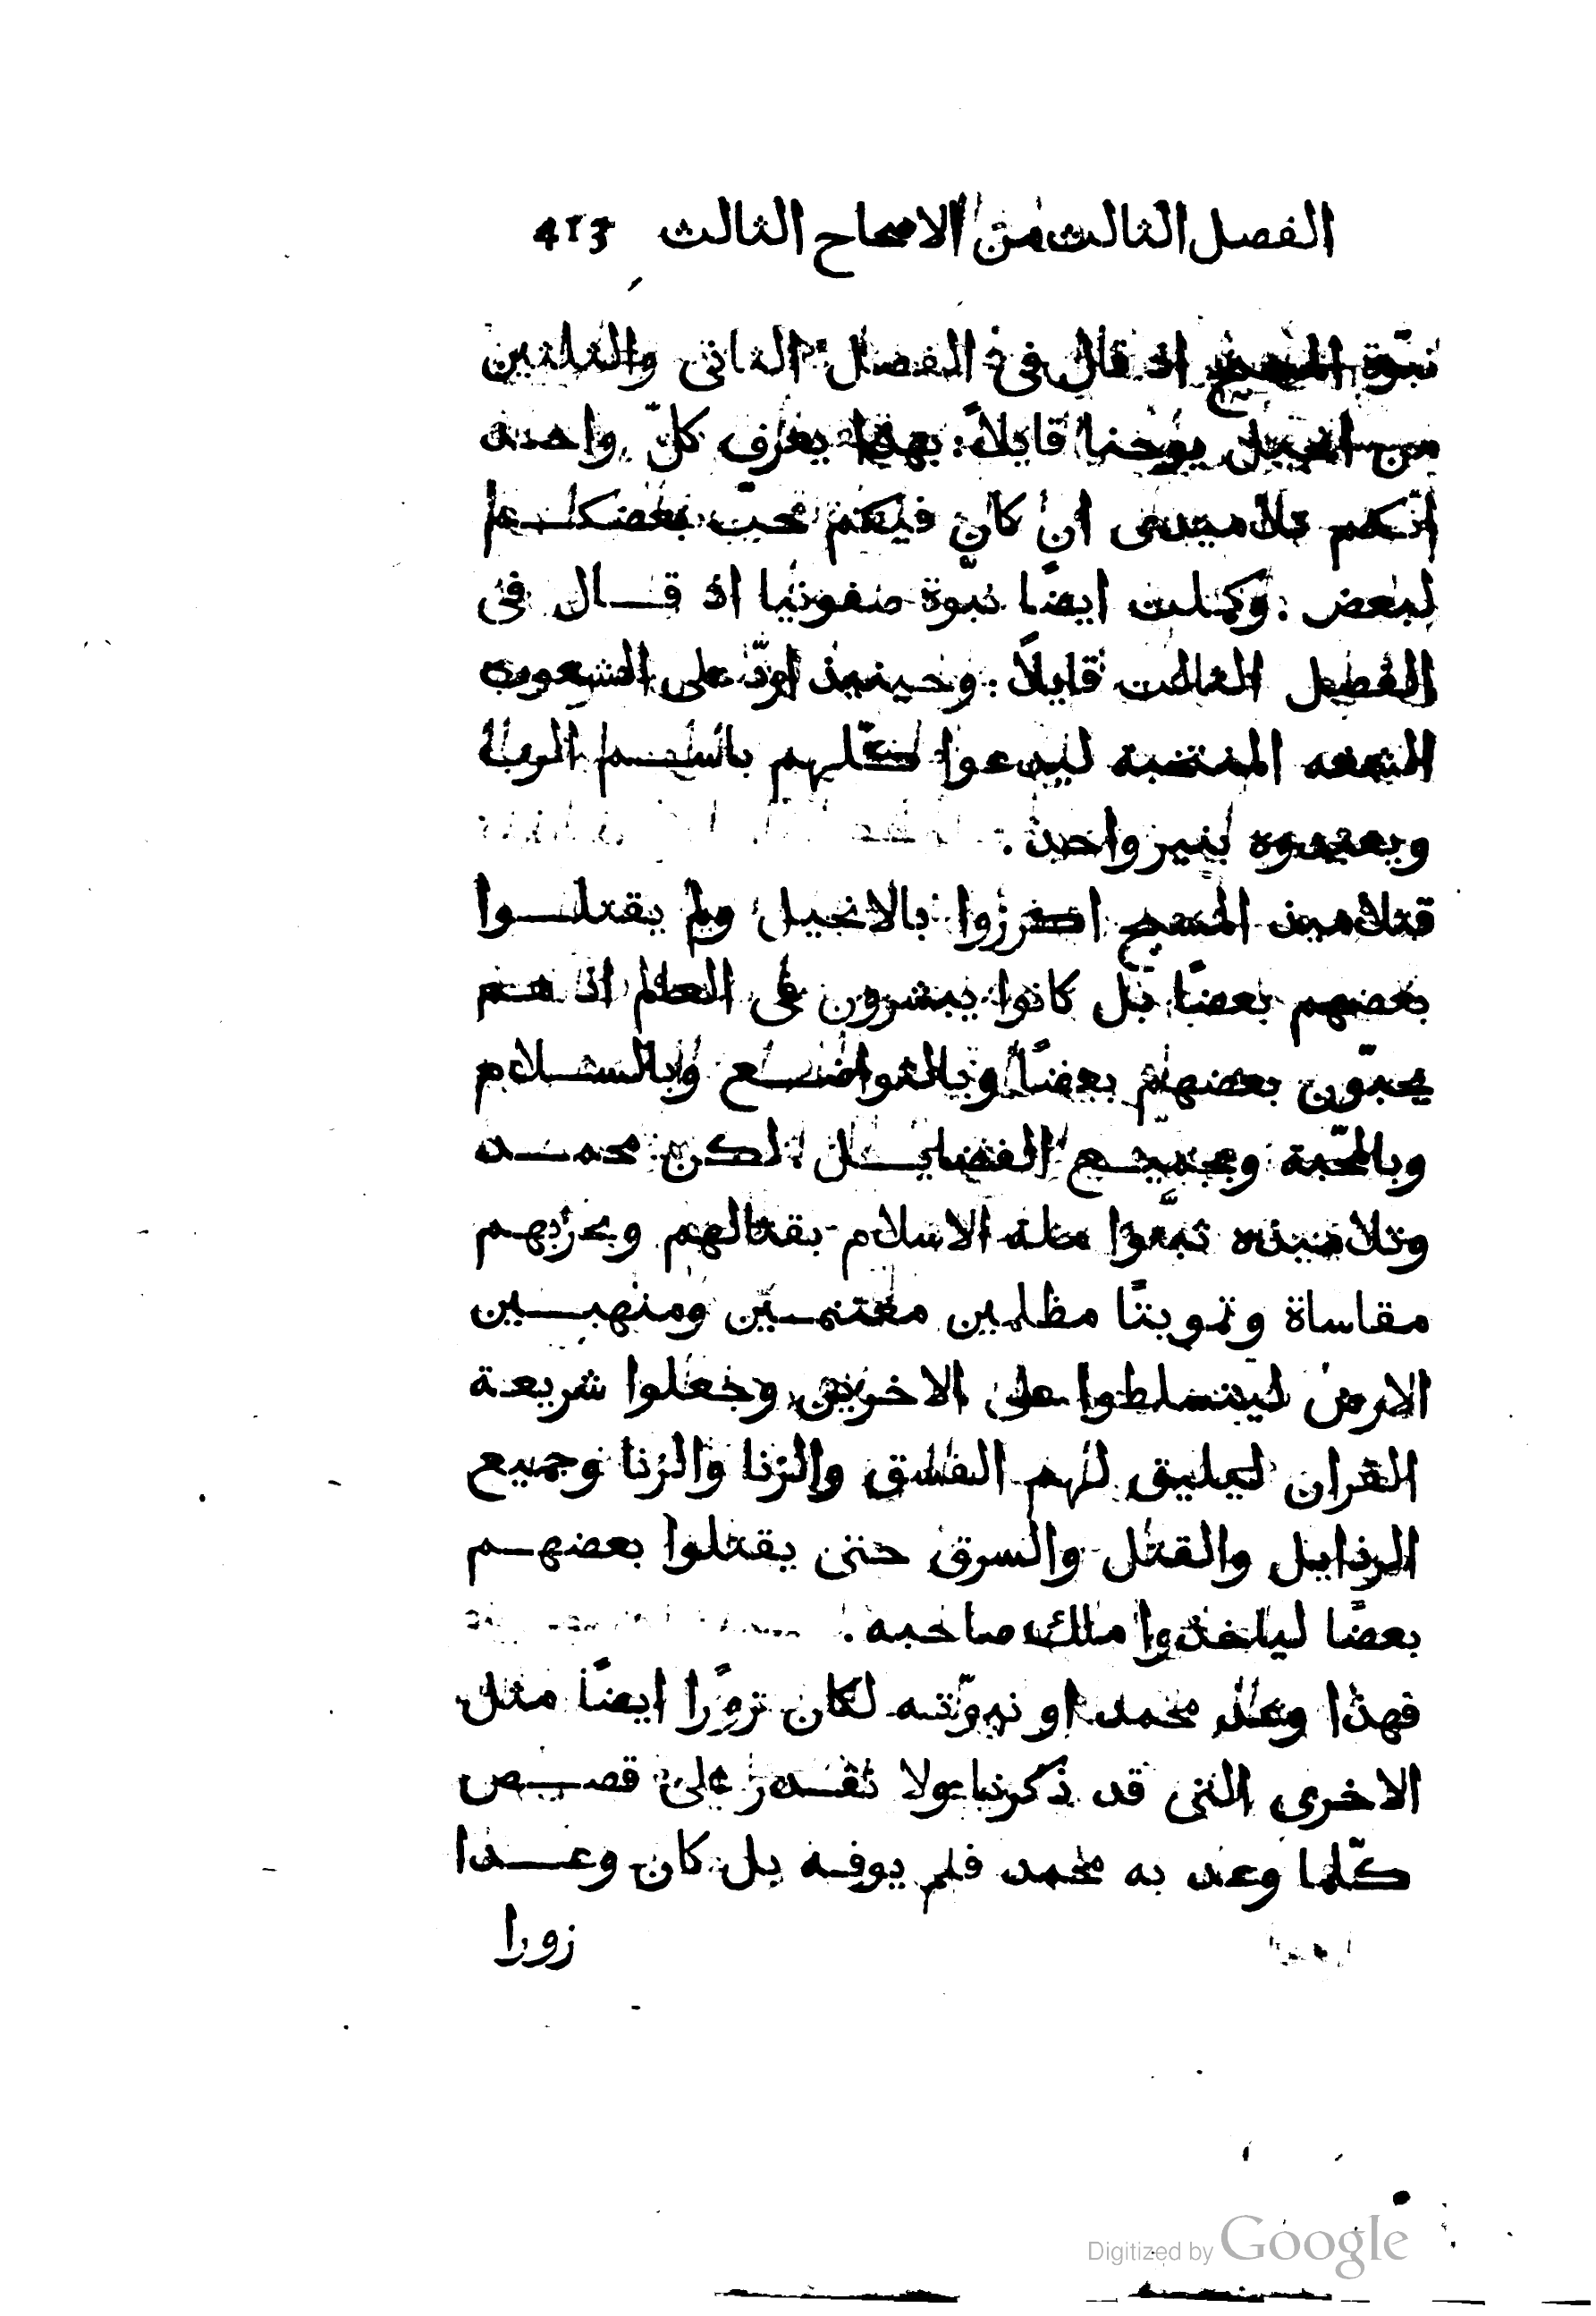 الفصل الثالث من الاصحاح الثالث 413
نبوّة المسيح اذ قال فى الفصل الثانى والثلثين
من انجيل يوحنا قايلاً: بهذا يعرف كلّ واحد
انّكم تلاميذى ان كان فيكم محبّ بعضكم
لبعض: وكملت ايضًا نبوّة صفونيا اذ قال فى
الفصل الثالث قايلاً: وحينيذ اردّ على الشعوب
الشفه المنتخبة ليدعوا كلّهم باسم الرب
ويعبدوه بنير واحد.
فتلاميذ المسيح اكرزوا بالانجيل ولم يقتلوا
بعضهم بعضًا بل كانوا يبشرون فى العالم اذ هم
يحبّون بعضهم بعضًا وبالتواضع وبالسلام
وبالمحبّة وبجميع الفضايل لكن محمد
وتلاميذه تبعوا ملة الاسلام بقتالهم وبحزبهم
مقاساة وتمويتًا مظلمين مغتنمين ومنهبين
الارض ليتسلطوا على الاخرين وجعلوا شريعة
القران ليليق لهم الفسق والزنا والزنا وجميع
الرذايل والقتل والسرق حتى يقتلوا بعضهم
بعضًا لياخذوا ملك صاحبه.
فهذا وعد محمد او نبوّته لكان تزوّرًا ايضًا مثل
الاخرى التى قد ذكرنا ولا نقدر على قصص
كلّما وعد به محمد فلم يوفه بل كان وعدا
زورا
Digitized by Google